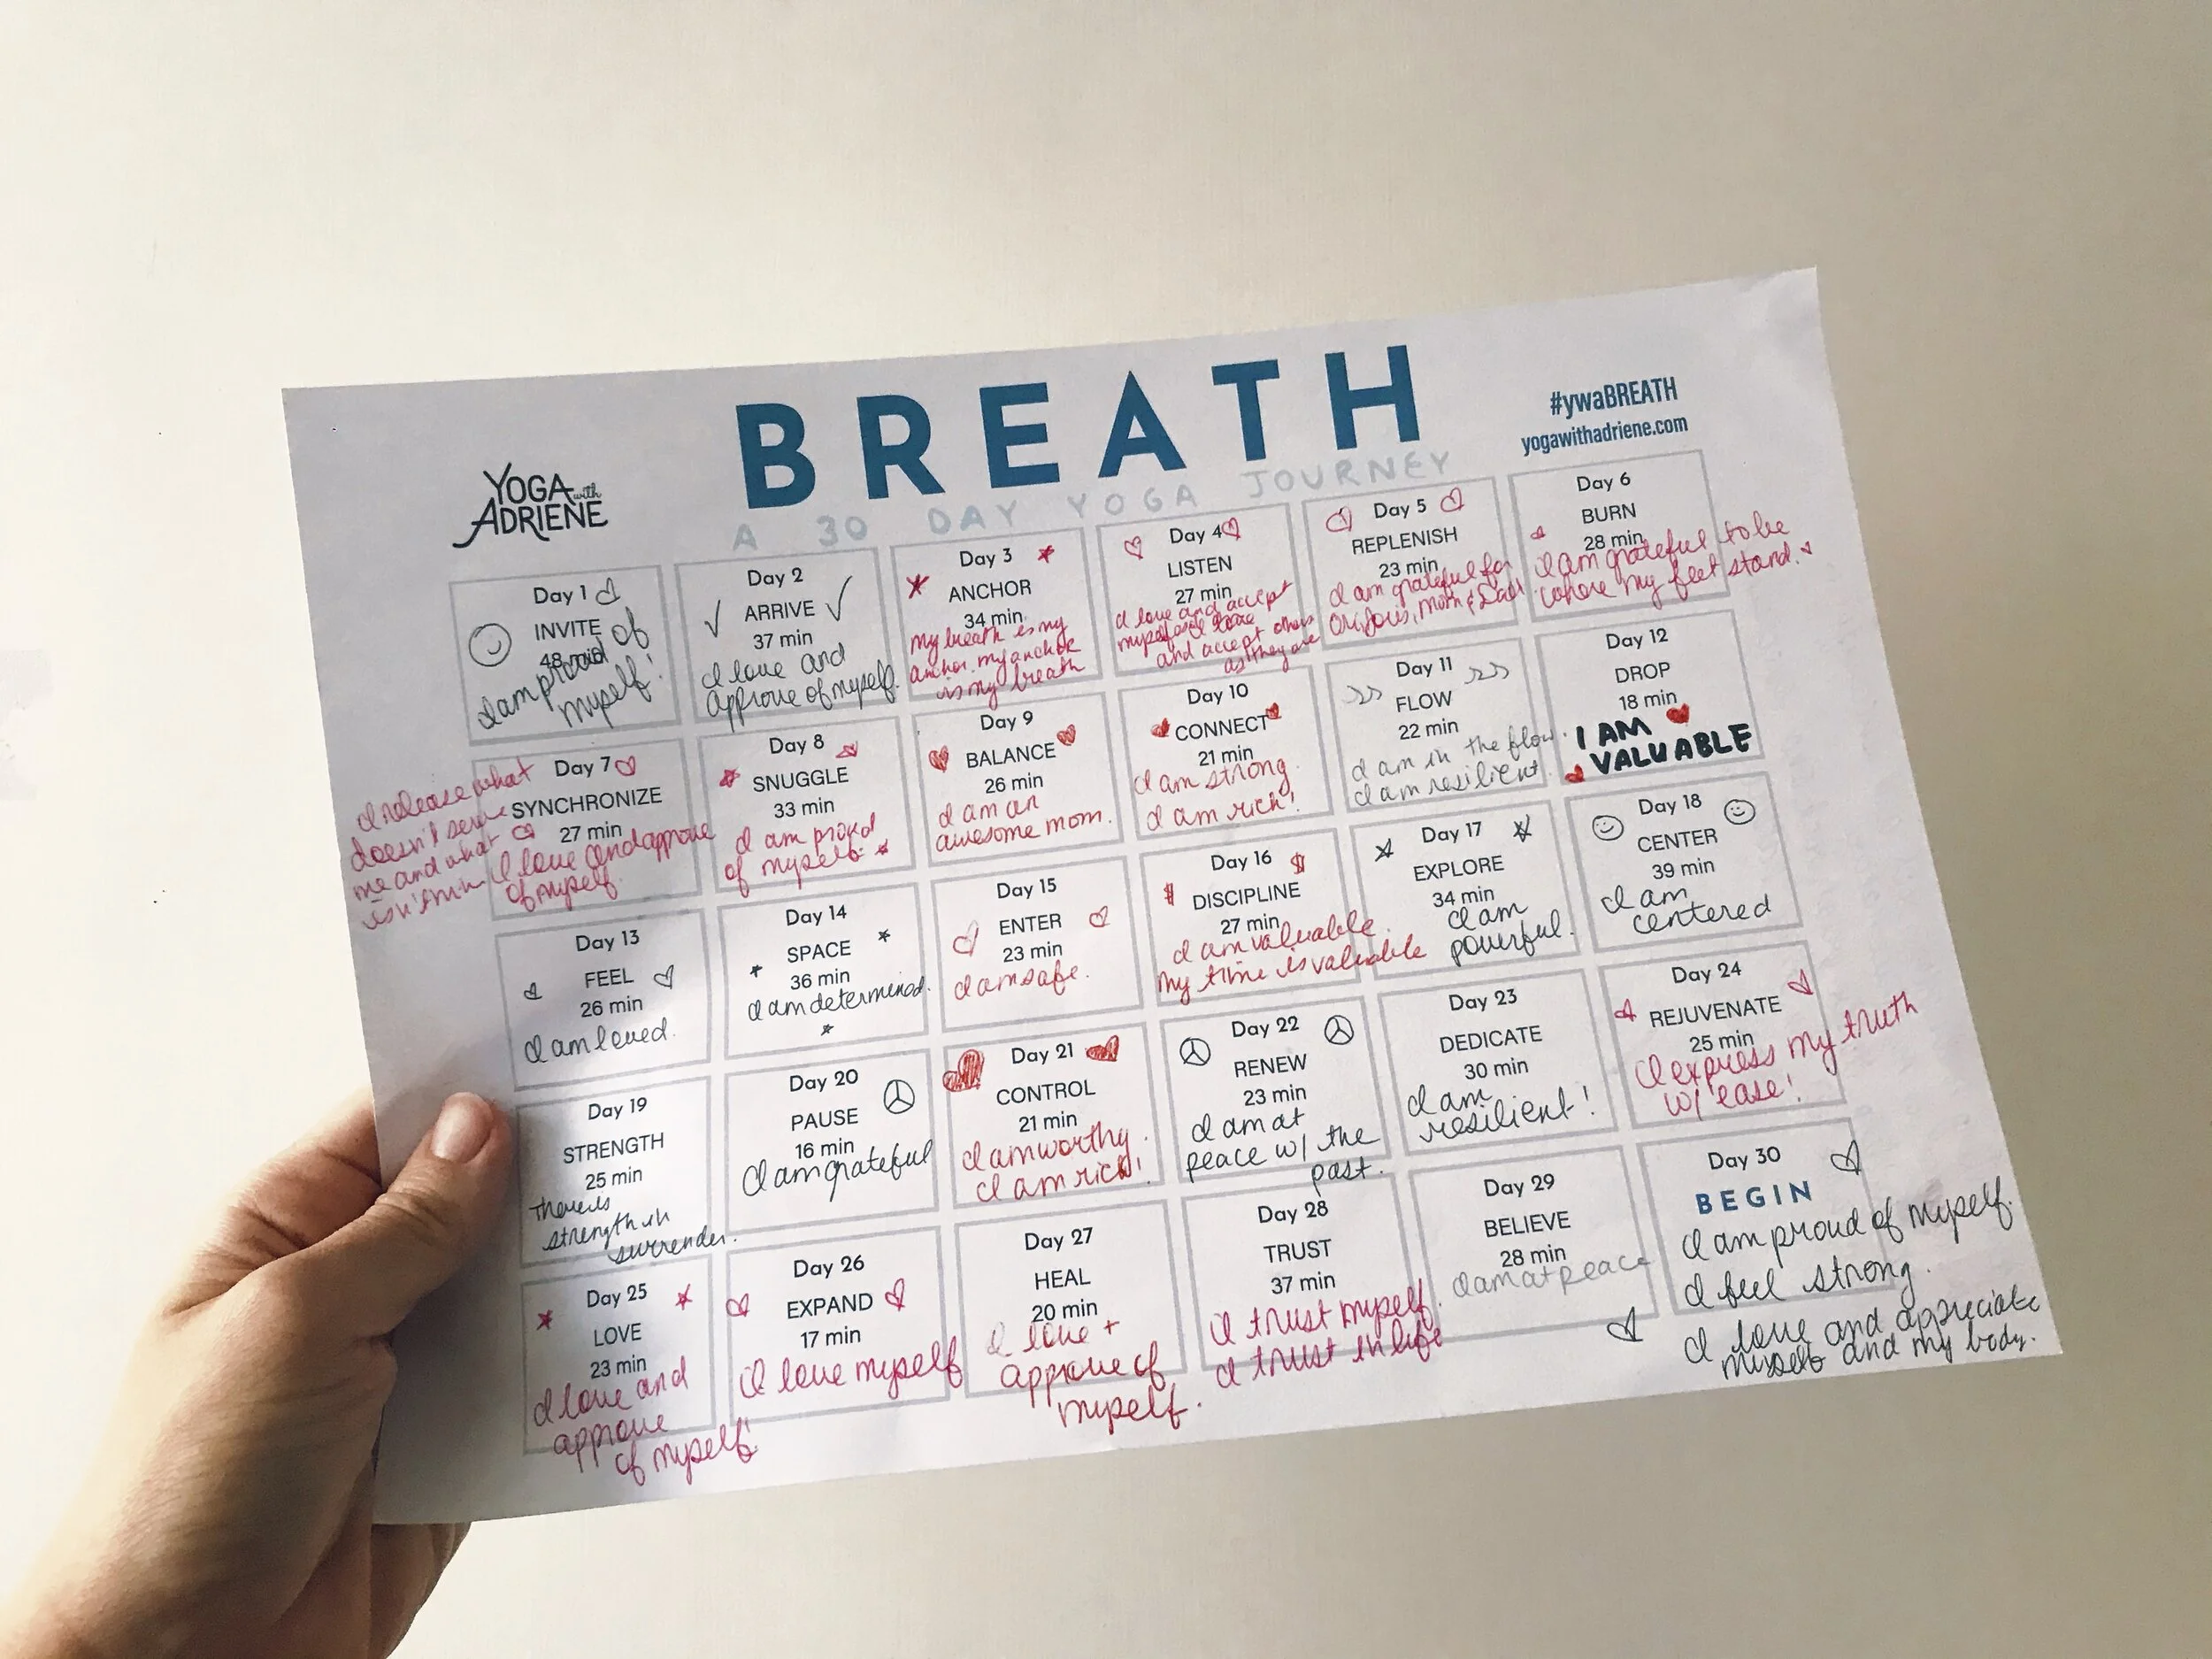 BREATH
A 30 DAY YOGA JOURNEY
YOGA with
ADRIENE
#ywaBREATH
yogawithadriene.com
Day 1
INVITE
48 min
I am proud of
myself!
Day 2
ARRIVE
37 min
I love and
approve of myself.
Day 3
ANCHOR
34 min
my breath is my
anchor, my anchor
is my breath
Day 4
LISTEN
27 min
I love and accept
myself and I love
and accept others
as they are
Day 5
REPLENISH
23 min
I am grateful for
Mom & Dad!
Day 6
BURN
28 min
I am grateful to be
where my feet stand.
I release what
doesn't serve
me and what
isn't mine
Day 7
SYNCHRONIZE
27 min
I love and approve
of myself.
Day 8
SNUGGLE
33 min
I am proud
of myself.
Day 9
BALANCE
26 min
I am an
awesome mom.
Day 10
CONNECT
21 min
I am strong.
I am rich!
Day 11
FLOW
22 min
I am in the flow.
I am resilient.
Day 12
DROP
18 min
I AM
VALUABLE
Day 13
FEEL
26 min
I am loved.
Day 14
SPACE
36 min
I am determined.
Day 15
ENTER
23 min
I am safe.
Day 16
$ $
DISCIPLINE
27 min
I am valuable.
my time is valuable
Day 17
EXPLORE
34 min
I am
powerful.
Day 18
CENTER
39 min
I am
centered
Day 19
STRENGTH
25 min
There is
strength in
surrender.
Day 20
PAUSE
16 min
I am grateful
Day 21
CONTROL
21 min
I am worthy.
I am rich!
Day 22
RENEW
23 min
I am at
peace w/ the
past.
Day 23
DEDICATE
30 min
I am
resilient!
Day 24
REJUVENATE
25 min
I express my truth
w/ ease!
Day 25
LOVE
23 min
I love and
approve
of myself!
Day 26
EXPAND
17 min
I love myself
Day 27
HEAL
20 min
I love +
approve of
myself.
Day 28
TRUST
37 min
I trust myself.
I trust in life
Day 29
BELIEVE
28 min
I am at peace
Day 30
BEGIN
I am proud of myself.
I feel strong.
I love and appreciate
myself and my body.